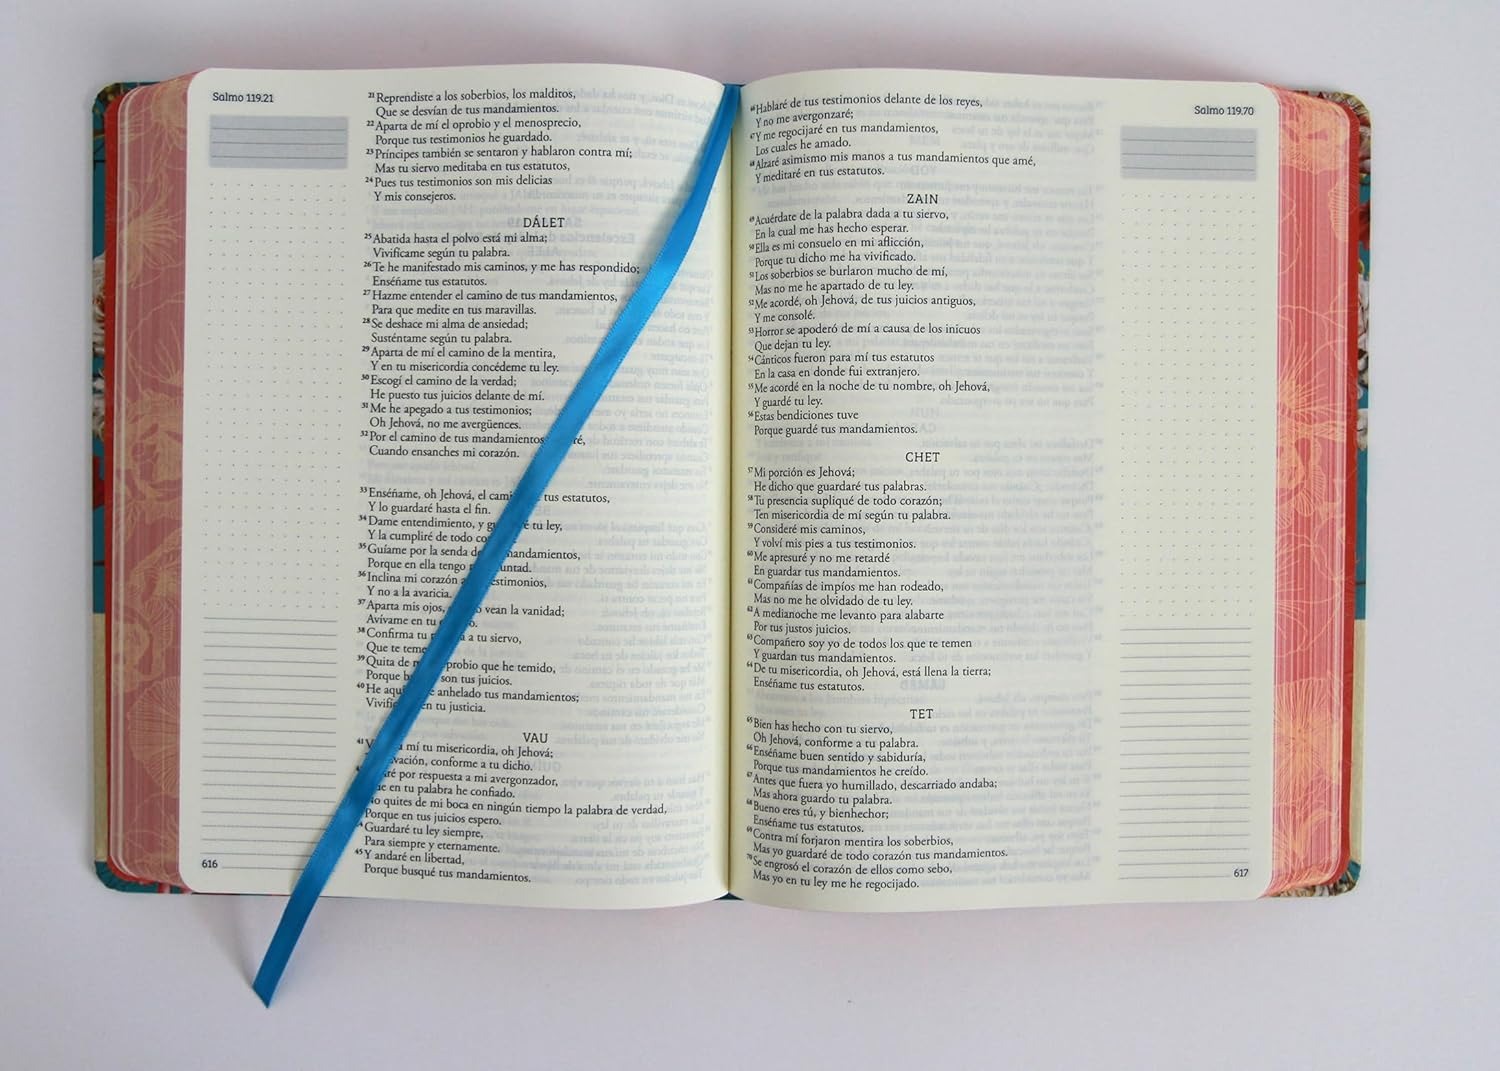 Salmo 119.21
21 Reprendiste a los soberbios, los malditos,
Que se desvían de tus mandamientos.
22 Aparta de mí el oprobio y el menosprecio,
Porque tus testimonios he guardado.
23 Príncipes también se sentaron y hablaron contra mí;
Mas tu siervo meditaba en tus estatutos,
24 Pues tus testimonios son mis delicias
Y mis consejeros.
DÁLET
25 Abatida hasta el polvo está mi alma;
Vivifícame según tu palabra.
26 Te he manifestado mis caminos, y me has respondido;
Enséñame tus estatutos.
27 Hazme entender el camino de tus mandamientos,
Para que medite en tus maravillas.
28 Se deshace mi alma de ansiedad;
Susténtame según tu palabra.
29 Aparta de mí el camino de la mentira,
Y en tu misericordia concédeme tu ley.
30 Escogí el camino de la verdad;
He puesto tus juicios delante de mí.
31 Me he apegado a tus testimonios;
Oh Jehová, no me avergüences.
32 Por el camino de tus mandamientos
Cuando ensanches mi corazón.
33 Enséñame, oh Jehová, el tus estatutos,
Y lo guardaré hasta el fin.
34 Dame entendimiento, y tu ley,
Y la cumpliré de todo
35 Guíame por la senda mandamientos,
Porque en ella tengo
36 Inclina mi corazón
Y no a la avaricia.
37 Aparta mis ojos, vean la vanidad;
Avívame en tu
38 Confirma tu a tu siervo,
Que te
39 Quita de oprobio que he temido,
Porque son tus juicios.
40 He anhelado tus mandamientos;
en tu justicia.
VAU
41 mí tu misericordia, oh Jehová;
conforme a tu dicho.
por respuesta a mi avergonzador,
en tu palabra he confiado.
No quites de mi boca en ningún tiempo la palabra de verdad,
Porque en tus juicios espero.
Guardaré tu ley siempre,
Para siempre y eternamente.
45 Y andaré en libertad,
Porque busqué tus mandamientos.
616
Salmo 119.70
46 Hablaré de tus testimonios delante de los reyes,
Y no me avergonzaré;
47 Y me regocijaré en tus mandamientos,
Los cuales he amado.
48 Alzaré asimismo mis manos a tus mandamientos que amé,
Y meditaré en tus estatutos.
ZAIN
49 Acuérdate de la palabra dada a tu siervo,
En la cual me has hecho esperar.
50 Ella es mi consuelo en mi aflicción,
Porque tu dicho me ha vivificado.
51 Los soberbios se burlaron mucho de mí,
Mas no me he apartado de tu ley.
52 Me acordé, oh Jehová, de tus juicios antiguos,
Y me consolé.
53 Horror se apoderó de mí a causa de los inicuos
Que dejan tu ley.
54 Cánticos fueron para mí tus estatutos
En la casa en donde fui extranjero.
55 Me acordé en la noche de tu nombre, oh Jehová,
Y guardé tu ley.
56 Estas bendiciones tuve
Porque guardé tus mandamientos.
CHET
57 Mi porción es Jehová;
He dicho que guardaré tus palabras.
58 Tu presencia supliqué de todo corazón;
Ten misericordia de mí según tu palabra.
59 Consideré mis caminos,
Y volví mis pies a tus testimonios.
60 Me apresuré y no me retardé
En guardar tus mandamientos.
61 Compañías de impíos me han rodeado,
Mas no me he olvidado de tu ley.
62 A medianoche me levanto para alabarte
Por tus justos juicios.
63 Compañero soy yo de todos los que te temen
Y guardan tus mandamientos.
64 De tu misericordia, oh Jehová, está llena la tierra;
Enséñame tus estatutos.
TET
65 Bien has hecho con tu siervo,
Oh Jehová, conforme a tu palabra.
66 Enséñame buen sentido y sabiduría,
Porque tus mandamientos he creído.
67 Antes que fuera yo humillado, descarriado andaba;
Mas ahora guardo tu palabra.
68 Bueno eres tú, y bienhechor;
Enséñame tus estatutos.
69 Contra mí forjaron mentira los soberbios,
Mas yo guardaré de todo corazón tus mandamientos.
70 Se engrosó el corazón de ellos como sebo,
Mas yo en tu ley me he regocijado.
617